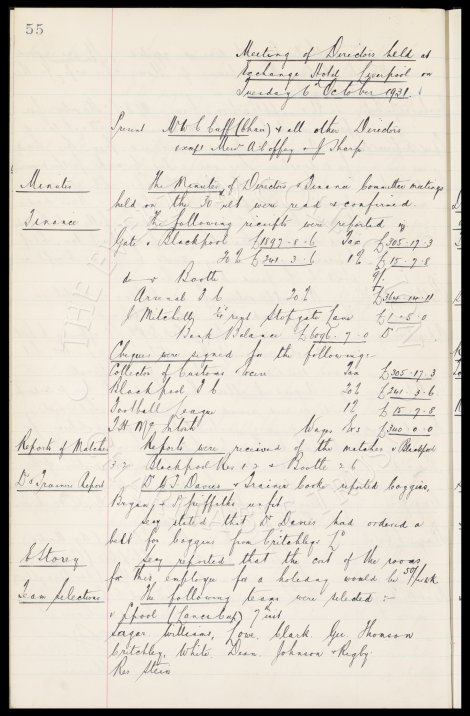 55
Meeting of Directors held at
Exchange Hotel Liverpool on
Tuesday 6th October 1931.
Present Mr W C Cuff (Chair) & all other Directors
except Messrs A Coffey & J Sharp
Minutes The Minutes of Directors & Finance Committee meetings
held on the 30 ult were read & confirmed.
Finance The following receipts were reported
Gate v Blackpool £1597.8.6 Tax £305.17.3
20% £241.3.6 1% £15.7.8
do v Bootle
Arsenal F C 20%
J Mitchell Stopgate Lane £1.5.0
Bank Balance £6096.7.0 D
Cheques were signed for the following:
Collector of Customs Tax £305.17.3
Blackpool F C 20% £241.3.6
Football League 1% £15.7.8
Wages £340.0.0
Reports of Matches Reports were received of the matches v Blackpool
3.2 Blackpool Res 1.2 & Bootle 2.6
Dr & Trainers Report Dr Davies & Trainer Cooke reported Coggins,
& Griffiths unfit
Secy stated that Dr Davies had ordered a
belt for Coggins from Critchleys
E Storey Secy reported that the cost of the rooms
for this employee for a holiday would be 50/- week
Team Selections The following teams were selected :-
v L'pool (Lancs Cup) 7th inst
Sagar. Williams, Lowe. Clark. Gee. Thomson
Critchley. White. Dean. Johnson & Rigby.
Res. Stein